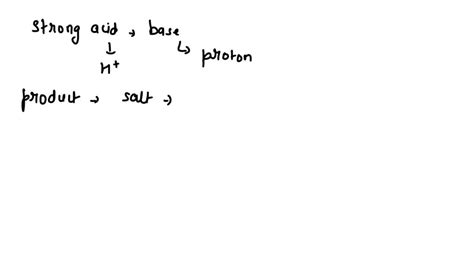 strong acid → base
↓ ↳ proton
H+
product → salt →